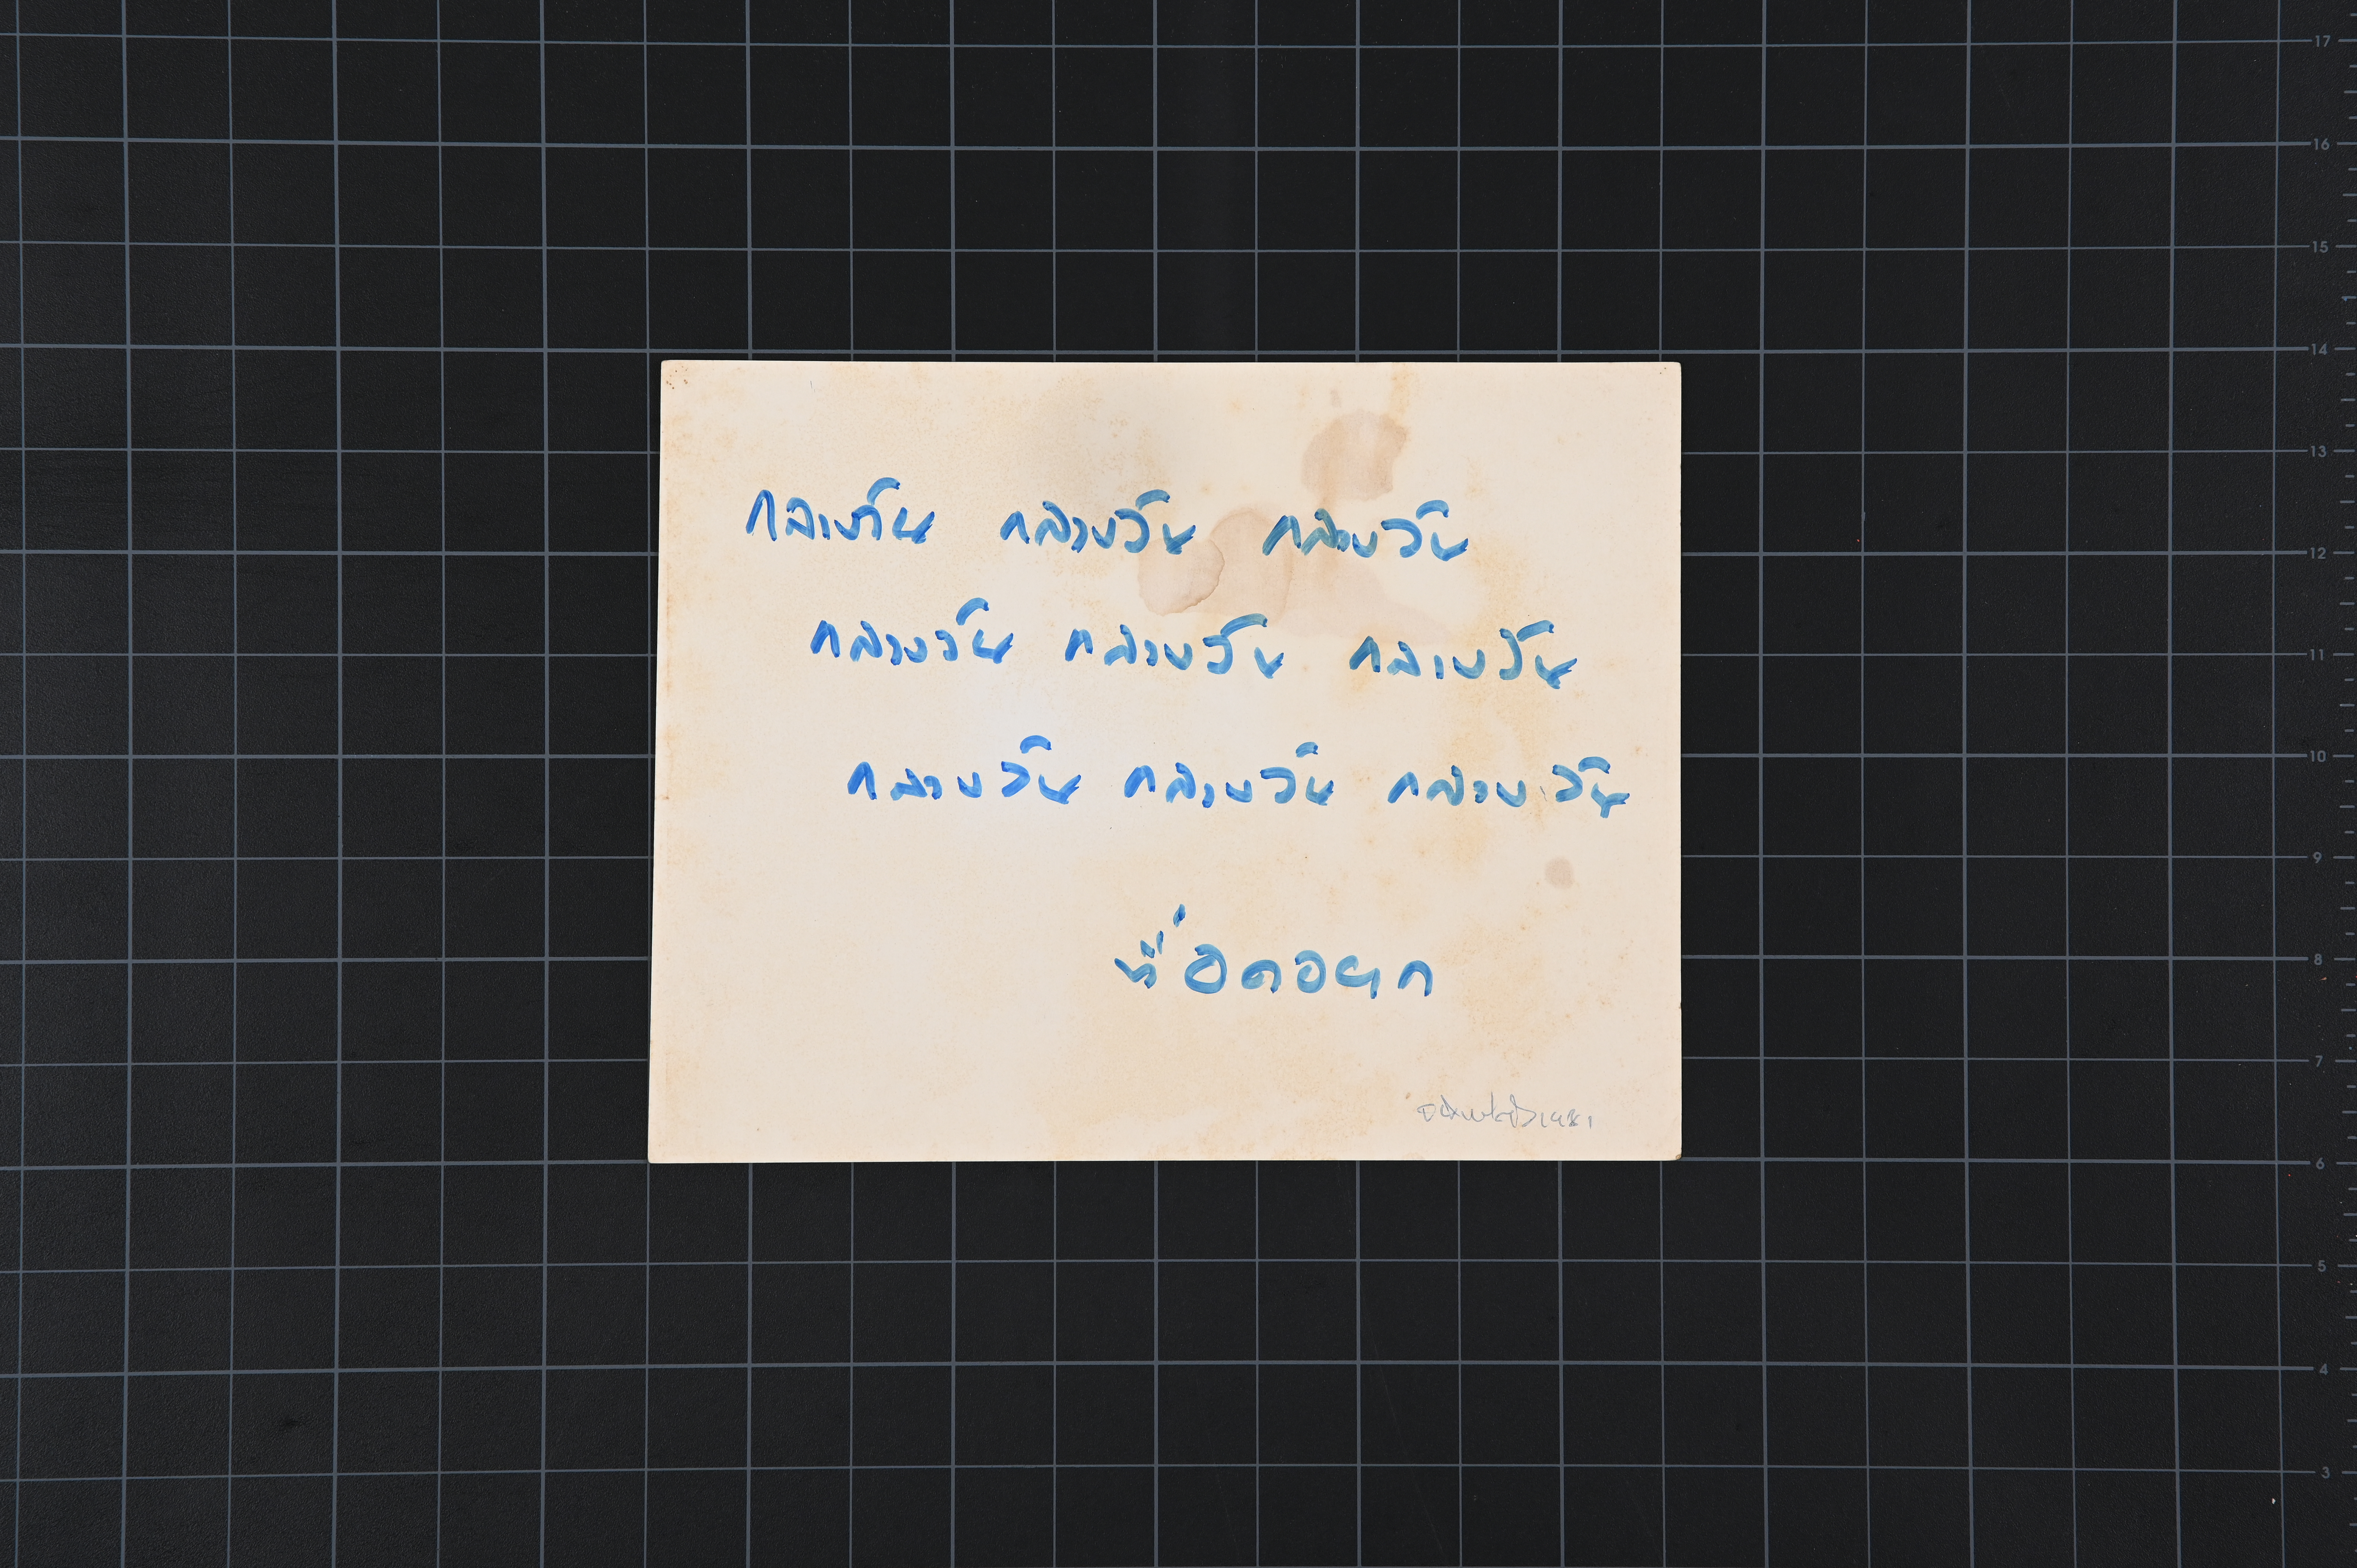 กลางวัน กลางวัน กลางวัน
กลางวัน กลางวัน กลางวัน
กลางวัน กลางวัน กลางวัน
ที่อดอยาก
1981
17
16
15
14
13
12
11
10
9
8
7
6
5
4
3